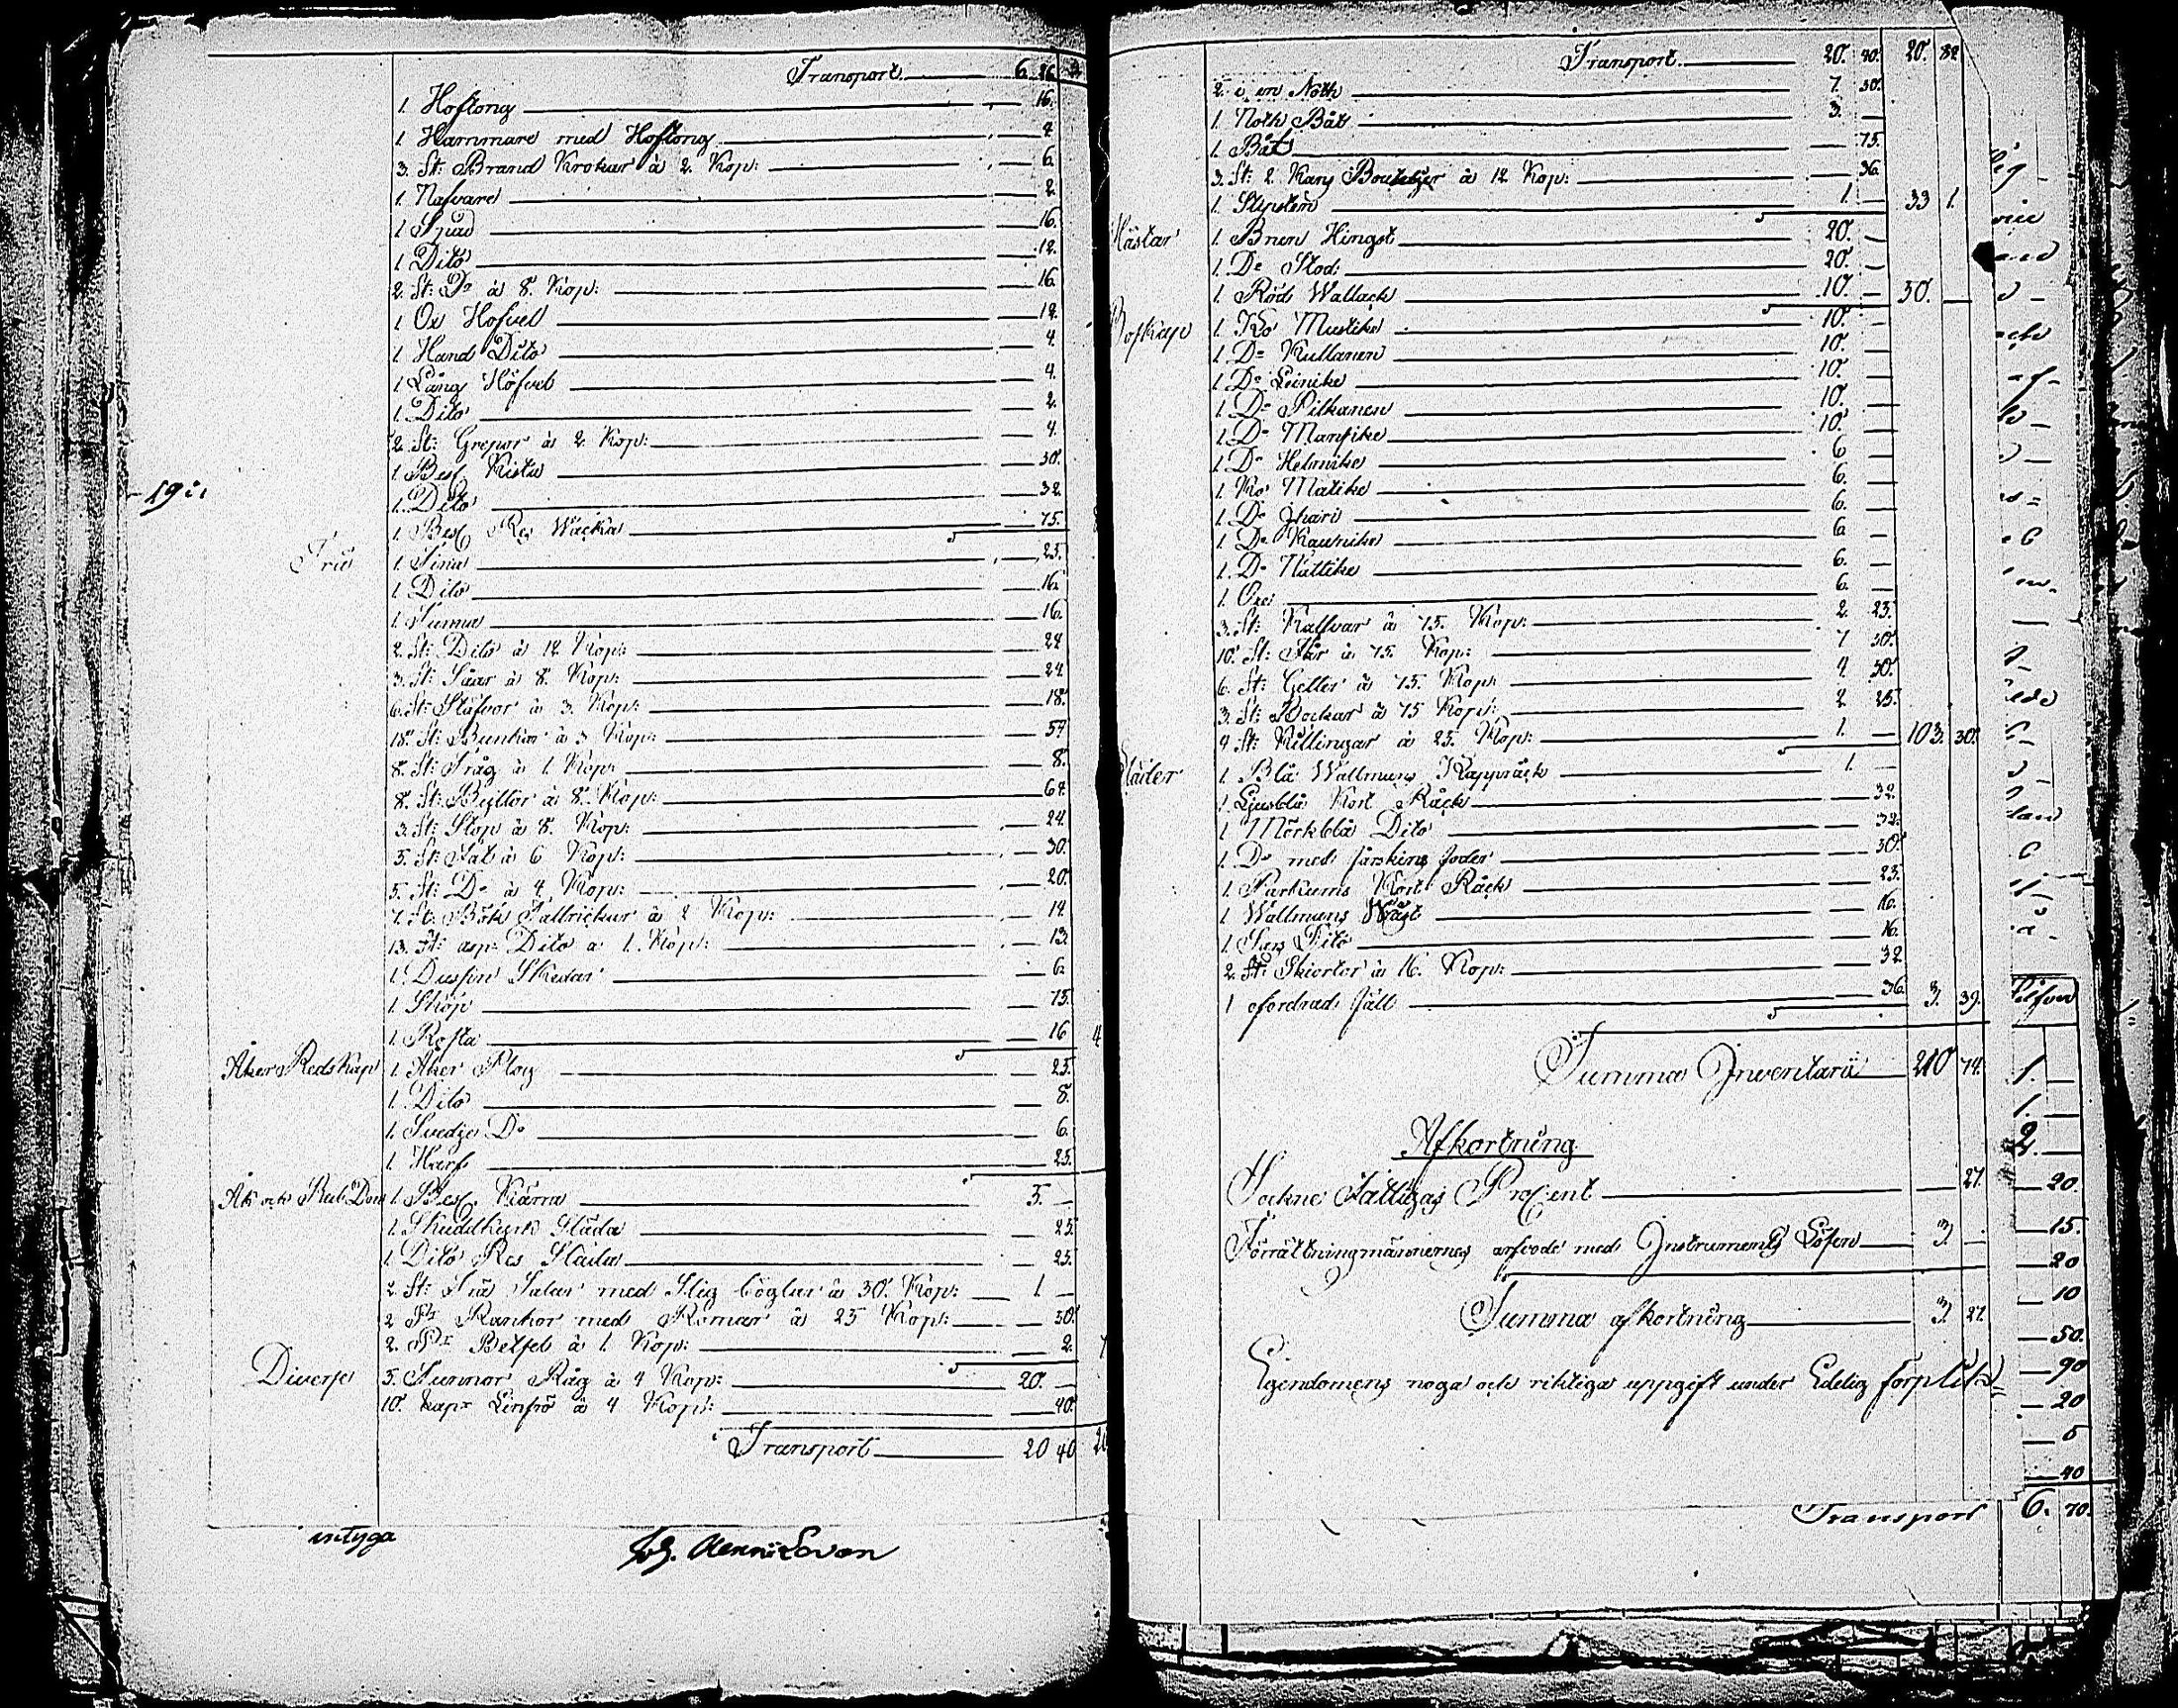 Transport 6.
1. Hoftong 16.
1. Hammare med Hoftong 4.
3. St: Brand Krokar à 2. Kop: 6.
1. Nafvare 2.
1 Spad 16.
1. Dito 12.
2. St: Do à 8. Kop: 16.
1 Ox Hofvel 12.
1. Hand Dito 4.
1 Lång Höfvel 4.
1. Dito 2.
2. St: Grepar à 2. Kop: 4.
1. Besl Kista 50.
19
1. Dito 32.
1. Besl Res Wäcka 75.
Trä
1. Tina 25.
1. Dito 16.
1. Tunna 16.
2. St: Dito à 12 Kop: 24
3. St: Såar à 8. Kop: 24.
6. St: Stäfvor à 3. Kop: 18.
18. St: Bunkar à 3 Kop: 54
8. St: Tråg à 1. Kop: 8.
8. St: Byttor à 8. Kop: 64.
3. St: Stop à 8. Kop: 24.
5. St: Fat à 6 Kop: 30.
5. St: Do à 4. Kop: 20.
7. St: Björk Tallrickar à 2 Kop: 14.
13. St: asp: Dito à 1. Kop: 13.
1. Dussin Skedar 6.
1. Skåp 75.
1. Rosta 16 4
Åker Redskap
1. Åker Plog 25.
1. Dito 8.
1. Svedje Do 6.
1. Harf 25.
Åk och Red Don
1. Besl Kärra 5. —
1. Skuddkyrk Släda 25.
1. Dito Res Släda 25.
2. St: Trä Salar med Stig böglar à 50. Kop: 1. —
2 Pr Rankor med Römar à 25 Kop: 50.
2. Pr Betsel à 1. Kop: 2.
Diverse
5. Tunnor Råg à 4 Kop: 20. —
10. kapr Linfrö à 4 Kop: 40.
Transport 20 40
intyga
Joh.
Transport 20. 40. 20. 32.
2. i en Noth 7. 50.
1. Noth Båt 3. —
1. Båt — 75.
3. St: 2 Kans Bouteljer à 12 Kop: — 36.
1. Slipsten 1. — 33 1.
Hästar
1. Brun Hingst 20. —
1. Do Stod: 20. —
1. Röd Wallack 10. — 50. —
Boskap
1. Ko Mustike 10. —
1. Do Kullanen 10. —
1. Do Leinike 10. —
1. Do Pilkanen 10. —
1. Do Mansike 10. —
1. Do Helmike 6 —
1. Ko Matike 6. —
1. Do Ihari 6. —
1. Do Kaunike 6 —
1. Do Nättike 6. —
1. Oxe 6. —
3. St: Kalfvar à 75. Kop: 2. 25.
10. St: Får à 75. Kop: 7 50.
6. St: Getter à 75. Kop: 4 50.
3. St: Bockar à 75 Kop: 2. 25.
4 St: Killingar à 25. Kop: 1. — 103. 50.
Kläder
1. Blå Wallmans Kappråck 1. —
1. Ljusblå Kort Råck — 32.
1 Mörkblå Dito — 32.
1. Do med fårskins foder — 50.
1. Parkums Kort Råck — 25.
1 Wallmans Wäst — 16.
1. Sars Dito — 16.
2. St: Skiortor à 16. Kop: — 32
1 ofodrad Päls — 36. 3. 39.
Summa Inventarii 210 74.
Afkortning
Sockne Fattigas ProCent — 21.
Förrättningmännernes arfvode med Instruments Lösen 3. —
Summa afkortning 3. 21.
Egendomens noga och riktiga uppgift under Edelig förplikt=
Transport 6. 70.
Silfver
1. —
1. —
2. —
— 20.
— 15.
— 20
— 10
— 50.
— 90
— 20
— 5
— 40